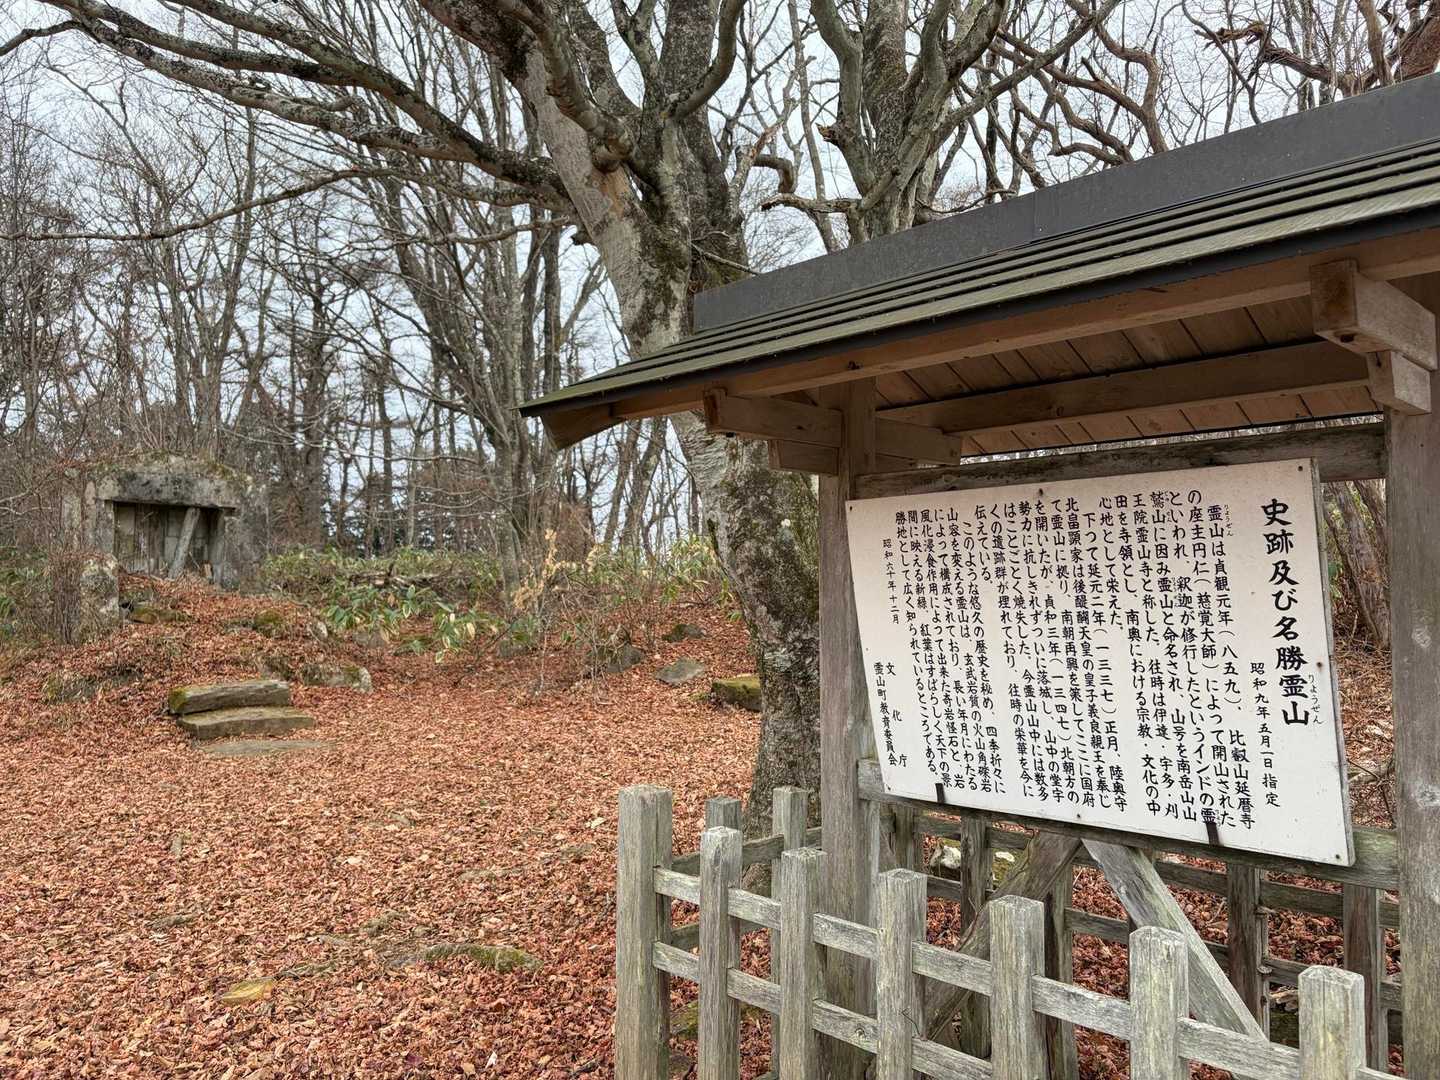 史跡及び名勝霊山
りょうぜん
昭和九年五月一日指定
霊山は貞観元年(八五九)、比叡山延暦寺
りょうぜん
の座主円仁(慈覚大師)によって開山された
といわれ、釈迦が修行したというインドの霊
鷲山に因み霊山と命名され、山号を南岳山山
王院霊山寺と称した。往時は伊達・宇多・刈
田を寺領とし、南奥における宗教・文化の中
心地として栄えた。
下って延元二年(一三三七)正月、陸奥守
北畠顕家は後醍醐天皇の皇子義良親王を奉じ
て霊山に拠り、南朝再興を策してここに国府
を開いたが、貞和三年(一三四七)北朝方の
勢力に抗しきれずついに落城し、山中の堂宇
はことごとく焼失した。今霊山山中には数多
くの遺跡群が埋れており、往時の栄華を今に
伝えている。
このような悠久の歴史を秘め、四季折々に
山容を変える霊山は、玄武岩質の火山角礫岩
によって構成されており、長い年月にわたる
風化浸食作用によって出来た奇岩怪石と、岩
間に映える新緑、紅葉はすばらしく天下の景
勝地として広く知られているところである。
昭和六十年十二月
文化庁
霊山町教育委員会